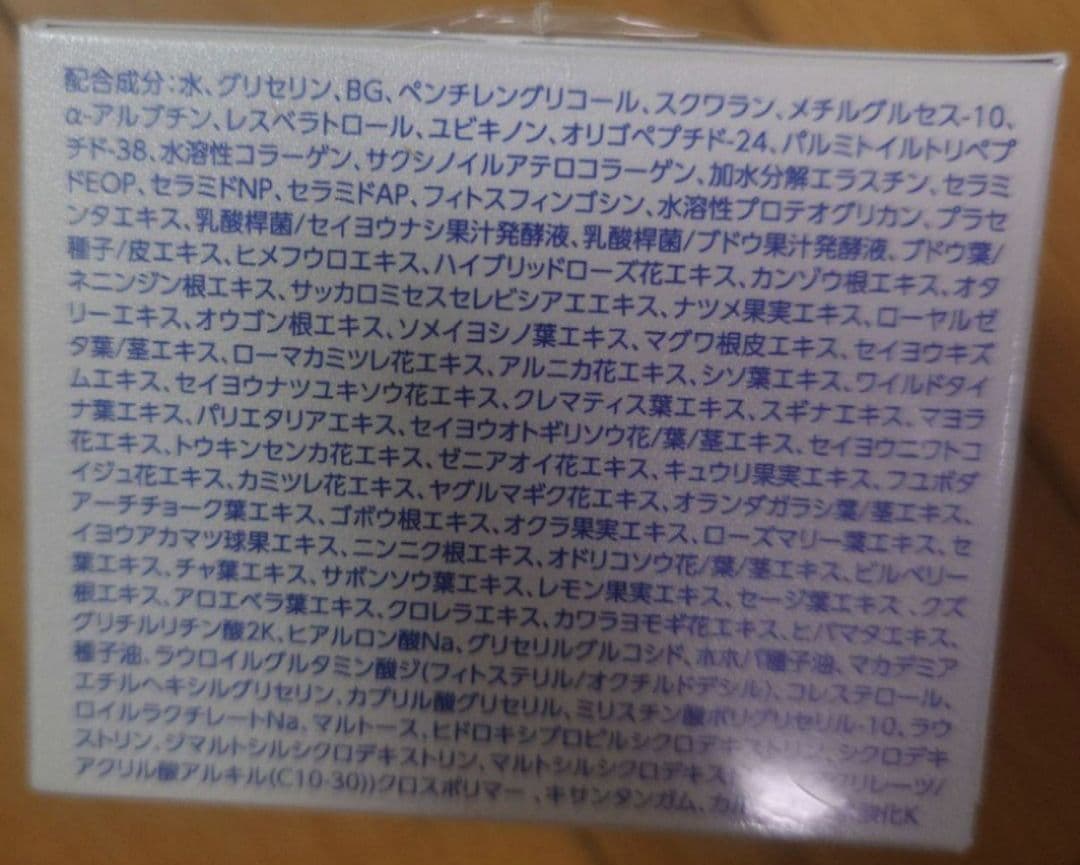 配合成分:水、グリセリン、BG、ペンチレングリコール、スクワラン、メチルグルセス-10、
α-アルブチン、レスベラトロール、ユビキノン、オリゴペプチド-24、パルミトイルトリペプ
チド-38、水溶性コラーゲン、サクシノイルアテロコラーゲン、加水分解エラスチン、セラミ
ドEOP、セラミドNP、セラミドAP、フィトスフィンゴシン、水溶性プロテオグリカン、プラセ
ンタエキス、乳酸桿菌/セイヨウナシ果汁発酵液、乳酸桿菌/ブドウ果汁発酵液、ブドウ葉/
種子/皮エキス、ヒメフウロエキス、ハイブリッドローズ花エキス、カンゾウ根エキス、オタ
ネニンジン根エキス、サッカロミセスセレビシアエエキス、ナツメ果実エキス、ローヤルゼ
リーエキス、オウゴン根エキス、ソメイヨシノ葉エキス、マグワ根皮エキス、セイヨウキズ
タ葉/茎エキス、ローマカミツレ花エキス、アルニカ花エキス、シソ葉エキス、ワイルドタイ
ムエキス、セイヨウナツユキソウ花エキス、クレマティス葉エキス、スギナエキス、マヨラ
ナ葉エキス、パリエタリアエキス、セイヨウオトギリソウ花/葉/茎エキス、セイヨウニワトコ
花エキス、トウキンセンカ花エキス、ゼニアオイ花エキス、キュウリ果実エキス、フユボダ
イジュ花エキス、カミツレ花エキス、ヤグルマギク花エキス、オランダガラシ葉/茎エキス、
アーチチョーク葉エキス、ゴボウ根エキス、オクラ果実エキス、ローズマリー葉エキス、セ
イヨウアカマツ球果エキス、ニンニク根エキス、オドリコソウ花/葉/茎エキス、ビルベリー
葉エキス、チャ葉エキス、サボンソウ葉エキス、レモン果実エキス、セージ葉エキス、クズ
根エキス、アロエベラ葉エキス、クロレラエキス、カワラヨモギ花エキス、ヒバマタエキス、
グリチルリチン酸2K、ヒアルロン酸Na、グリセリルグルコシド、ホホバ種子油、マカデミア
種子油、ラウロイルグルタミン酸ジ(フィトステリル/オクチルドデシル)、コレステロール、
エチルヘキシルグリセリン、カプリル酸グリセリル、ミリスチン酸ポリグリセリル-10、ラウ
ロイルラクチレートNa、マルトース、ヒドロキシプロピルシクロデキストリン、シクロデキ
ストリン、ジマルトシルシクロデキストリン、マルトシルシクロデキス リレーツ/
アクリル酸アルキル(C10-30))クロスポリマー、キサンタンガム、カル 酸化K